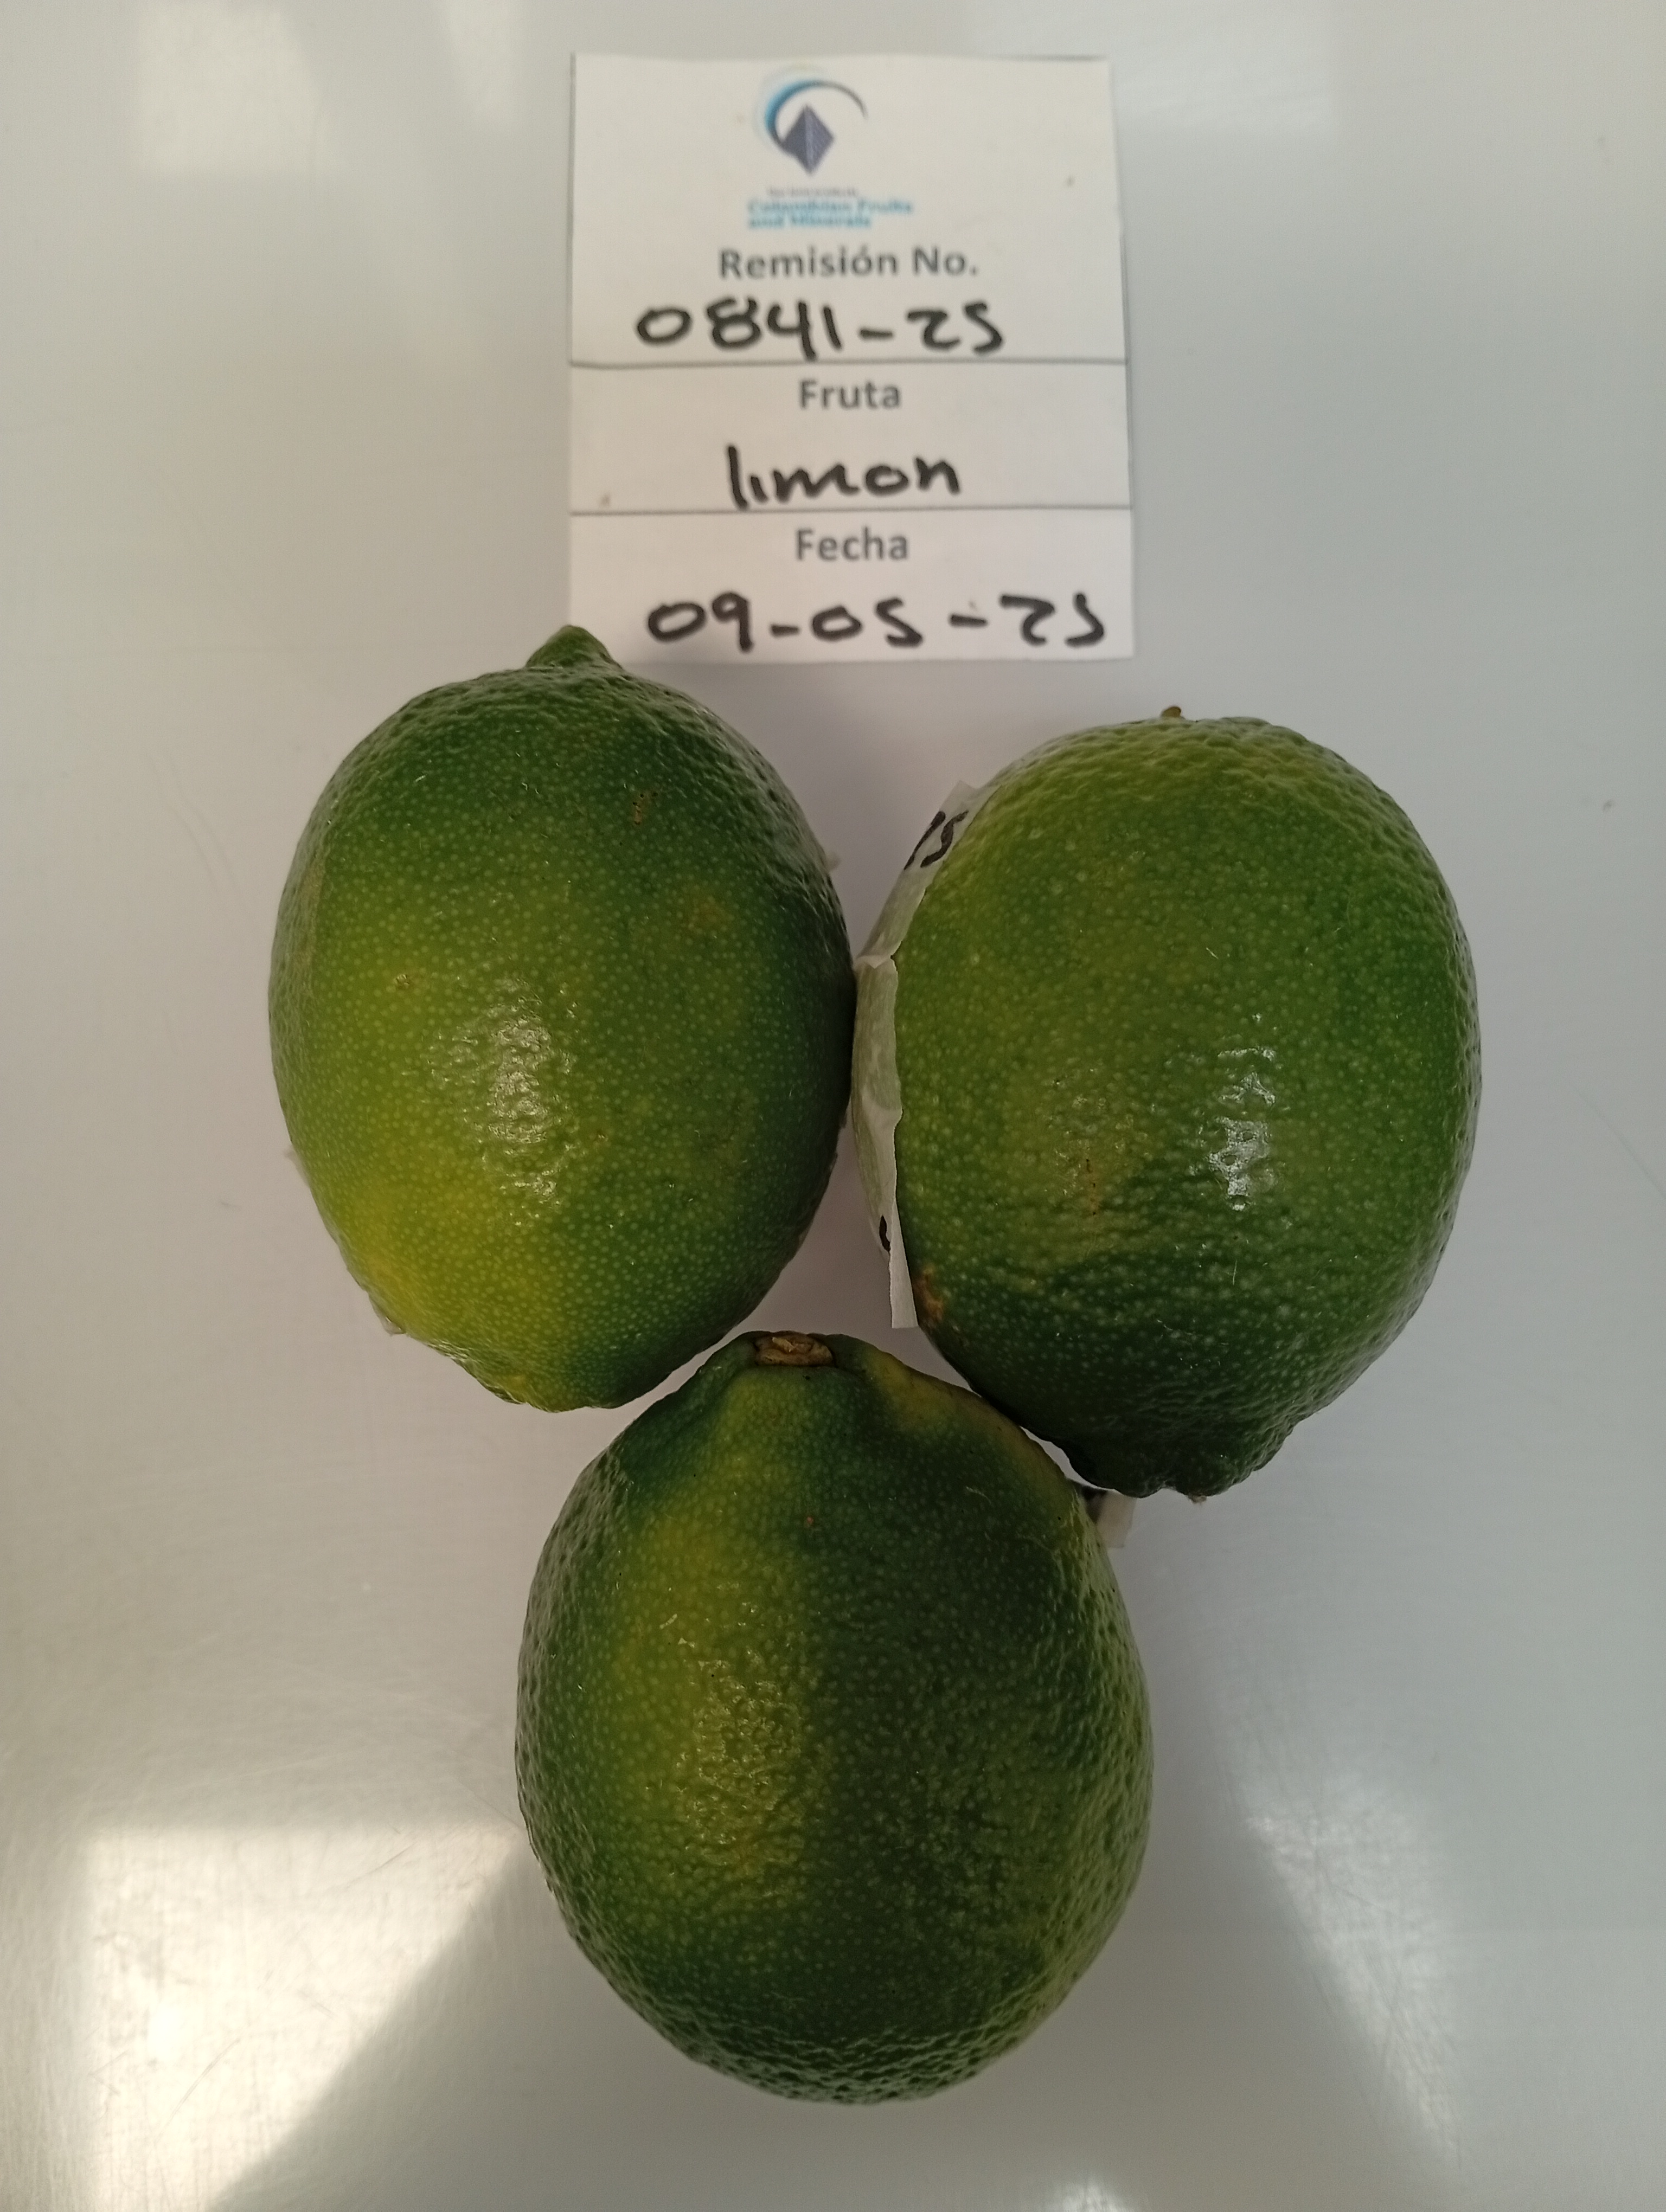 Colombian Fruits
and Minerals
Remisión No.
0841-25
Fruta
limon
Fecha
09-05-25